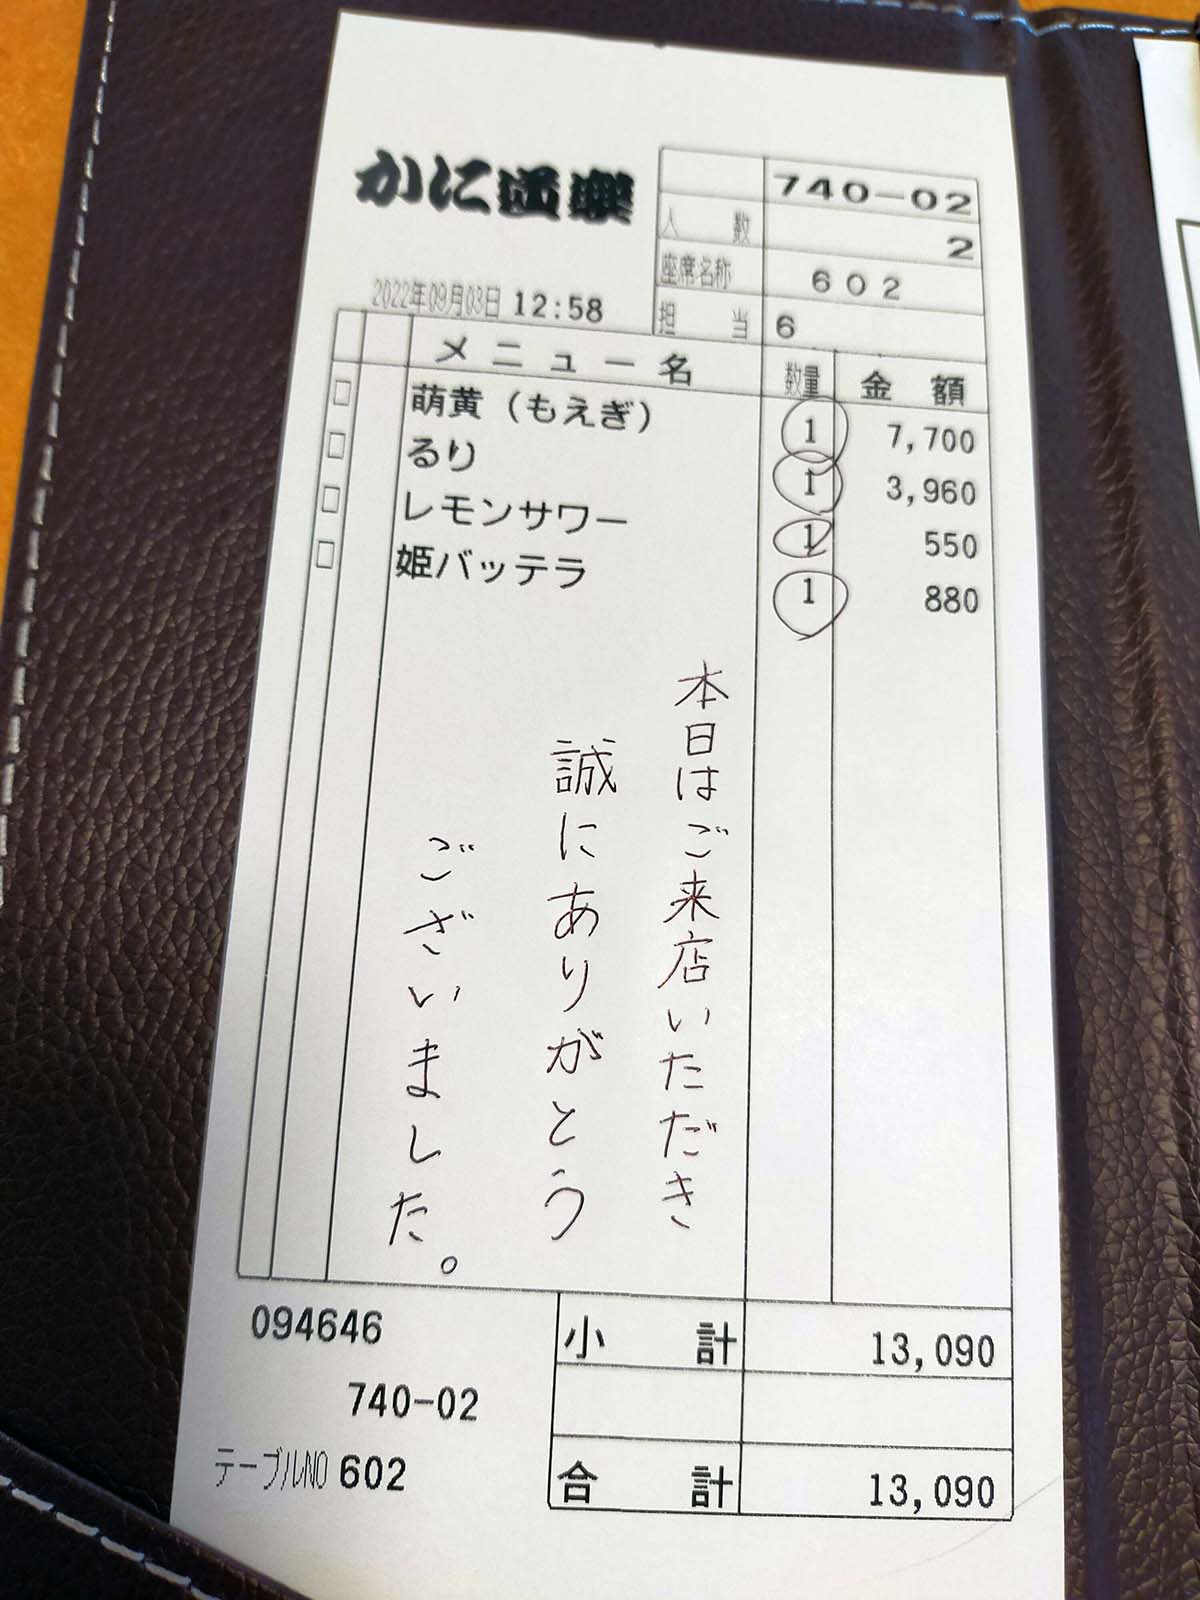 かに道楽
740-02
人数 2
座席名称 602
担当 6
2022年09月03日 12:58
メニュー名 数量 金額
萌黄（もえぎ） 1 7,700
るり 1 3,960
レモンサワー 1 550
姫バッテラ 1 880
本日はご来店いただき
誠にありがとう
ございました。
094646
小計 13,090
740-02
テーブルNO 602
合計 13,090